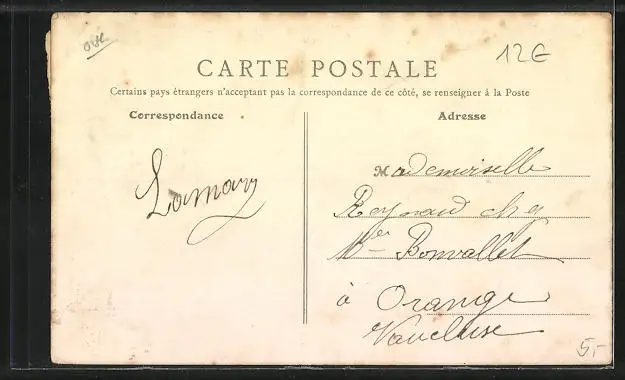 Oise
12€
CARTE POSTALE
Certains pays étrangers n'acceptant pas la correspondance de ce côté, se renseigner à la Poste
Correspondance
Adresse
Mademoiselle
Reynaud chez
Bonvallet
à Orange
Vaucluse
5,-